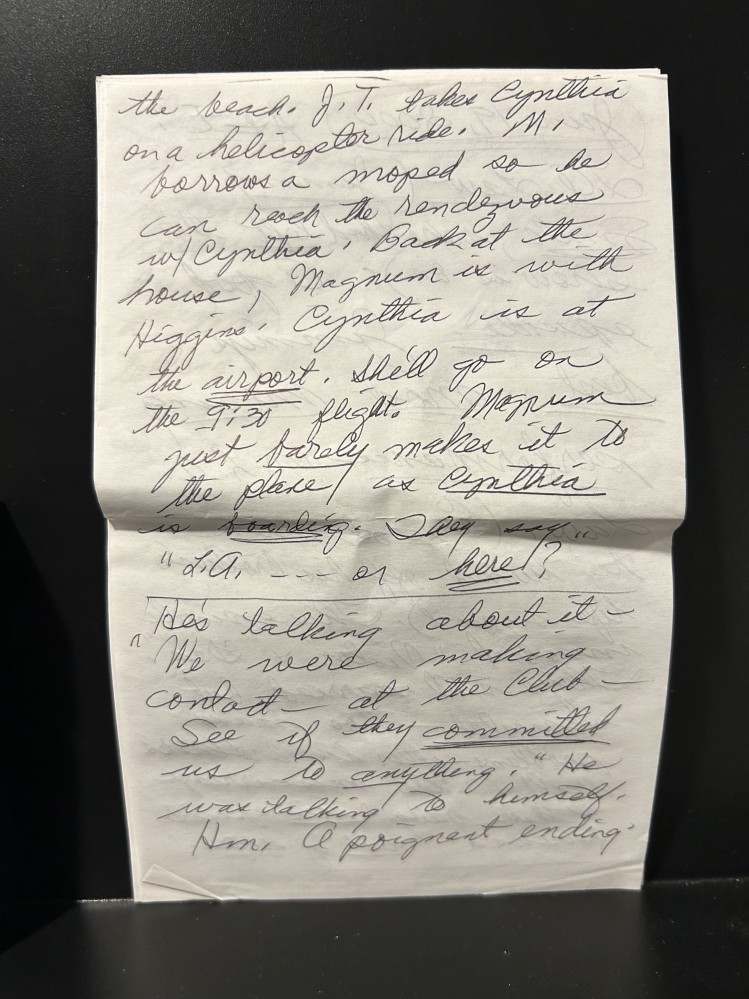 the beach. J.T. takes Cynthia
on a helicopter ride. M.
borrows a moped so he
can reach the rendezvous
w/ Cynthia. Back at the
house, Magnum is with
Higgins. Cynthia is at
the airport. She'll go on
the 9:30 flight. Magnum
just barely makes it to
the plane as Cynthia
is boarding. They say "
"L.A. --- or here!?
He's talking about it —
"We were making
contact — at the Club —
See if they committed
us to anything." He
was talking to himself.
Hm. A poignant ending.